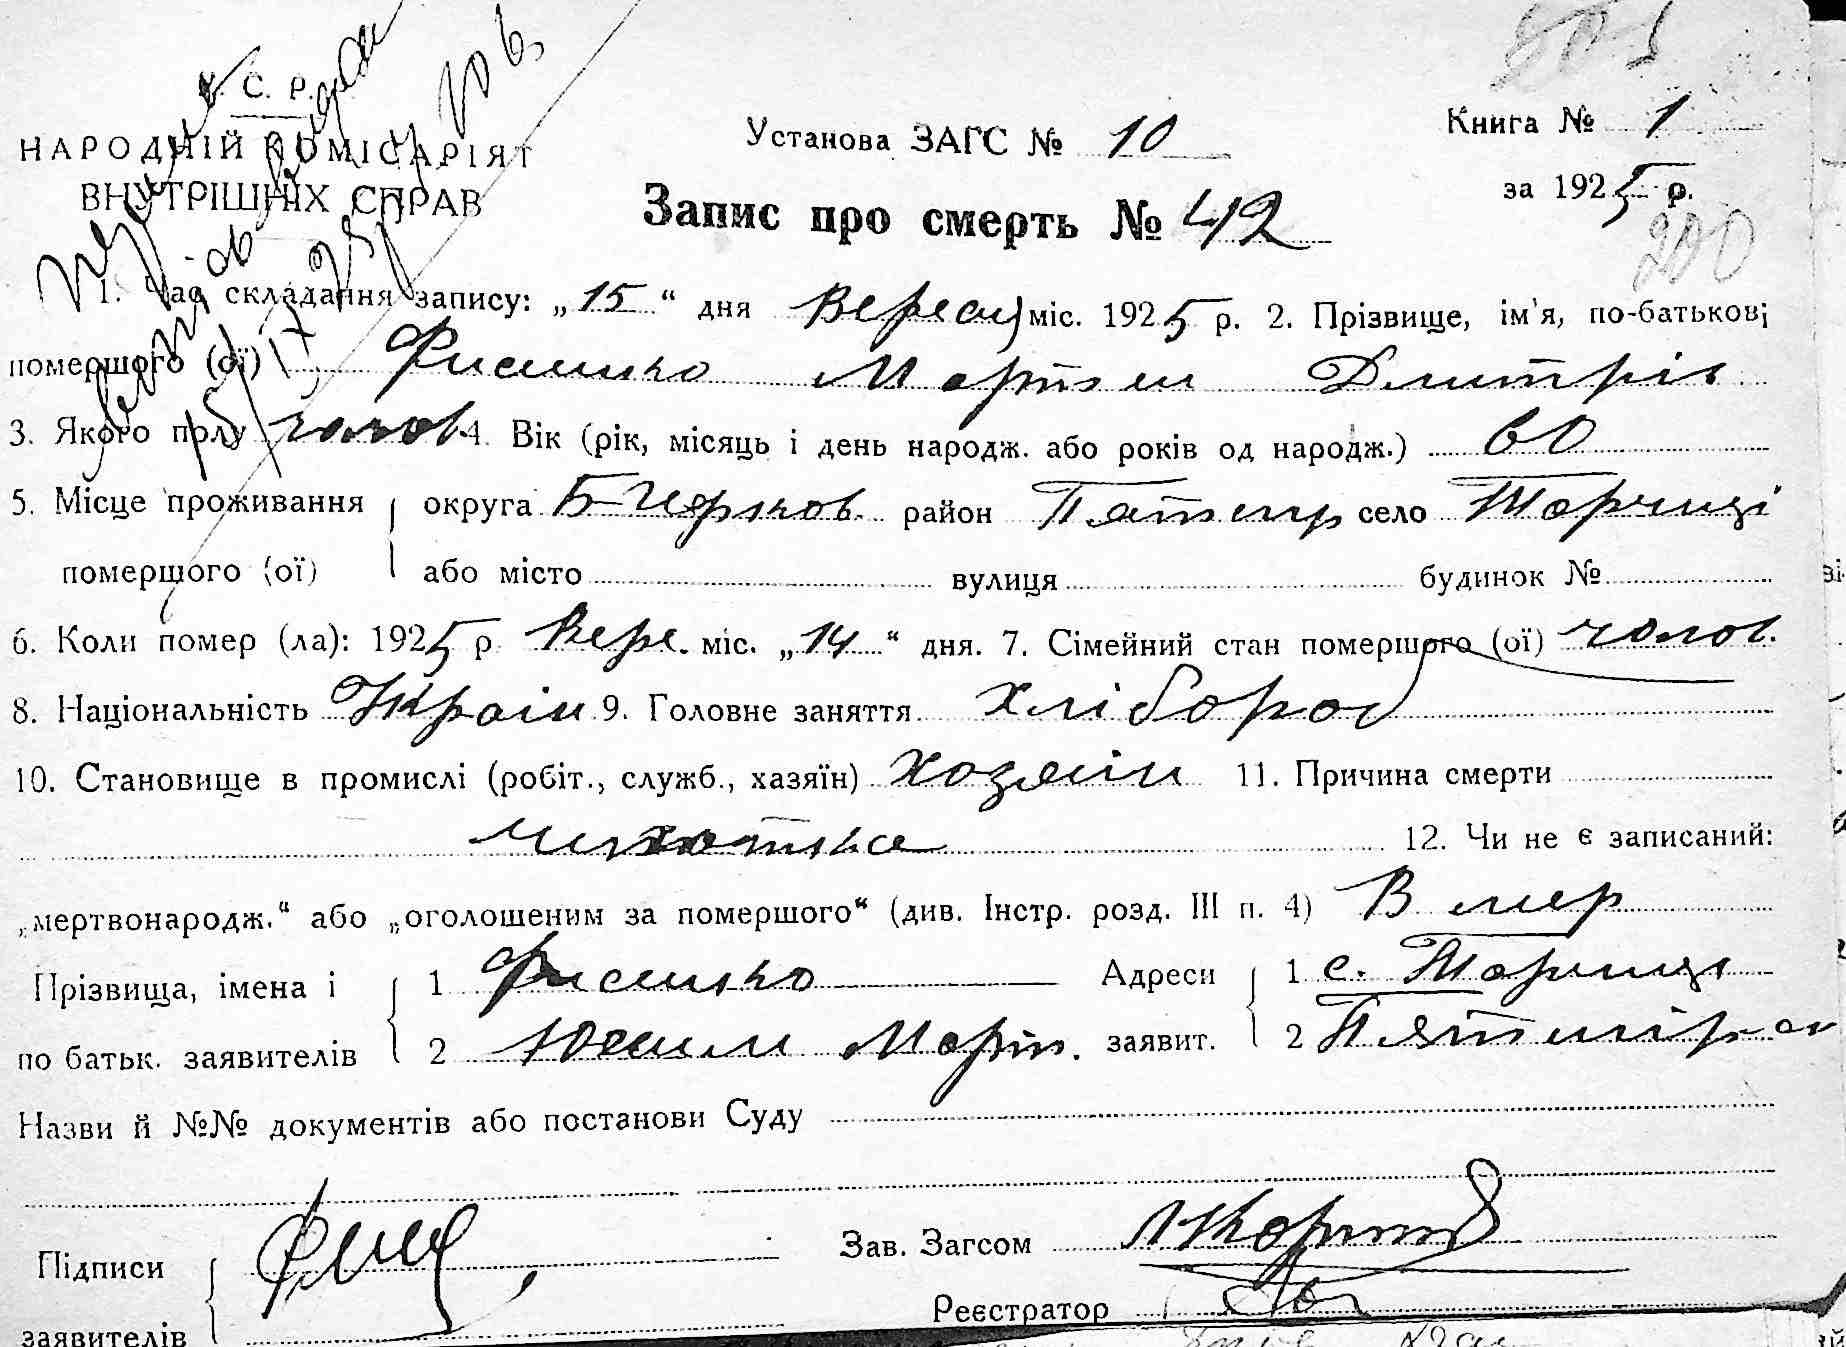 С. Р.
НАРОДНІЙ КОМІСАРІЯТ
ВНУТРІШНІХ СПРАВ
Установа ЗАГС № 10
Книга № 1
за 1925 р.
200
Запис про смерть № 412
1. Час складання запису: „15“ дня Вересн міс. 1925 р. 2. Прізвище, ім'я, по-батькові
помершого (ої) Фисишко Мартин Дмитрів
3. Якого полу чолов. 4. Вік (рік, місяць і день народж. або років од народж.) 60
5. Місце проживання помершого (ої) округа Б-Церков. район Пятигир село Торчиці
або місто вулиця будинок №
6. Коли помер (ла): 1925 р. Вере. міс. „14“ дня. 7. Сімейний стан помершого (ої) чолов.
8. Національність Україн 9. Головне заняття Хлібороб
10. Становище в промислі (робіт., служб., хазяїн) Хозяїн 11. Причина смерти
12. Чи не є записаний:
„мертвонародж.“ або „оголошеним за помершого“ (див. Інстр. розд. III п. 4) Вмер
Прізвища, імена і по батьк. заявителів 1 Фисишко Адреси заявит. 1 с. Торчиця
2 Юхим Март. 2 Пятигірськ
Назви й №№ документів або постанови Суду
Підписи заявителів
Зав. Загсом
Реєстратор